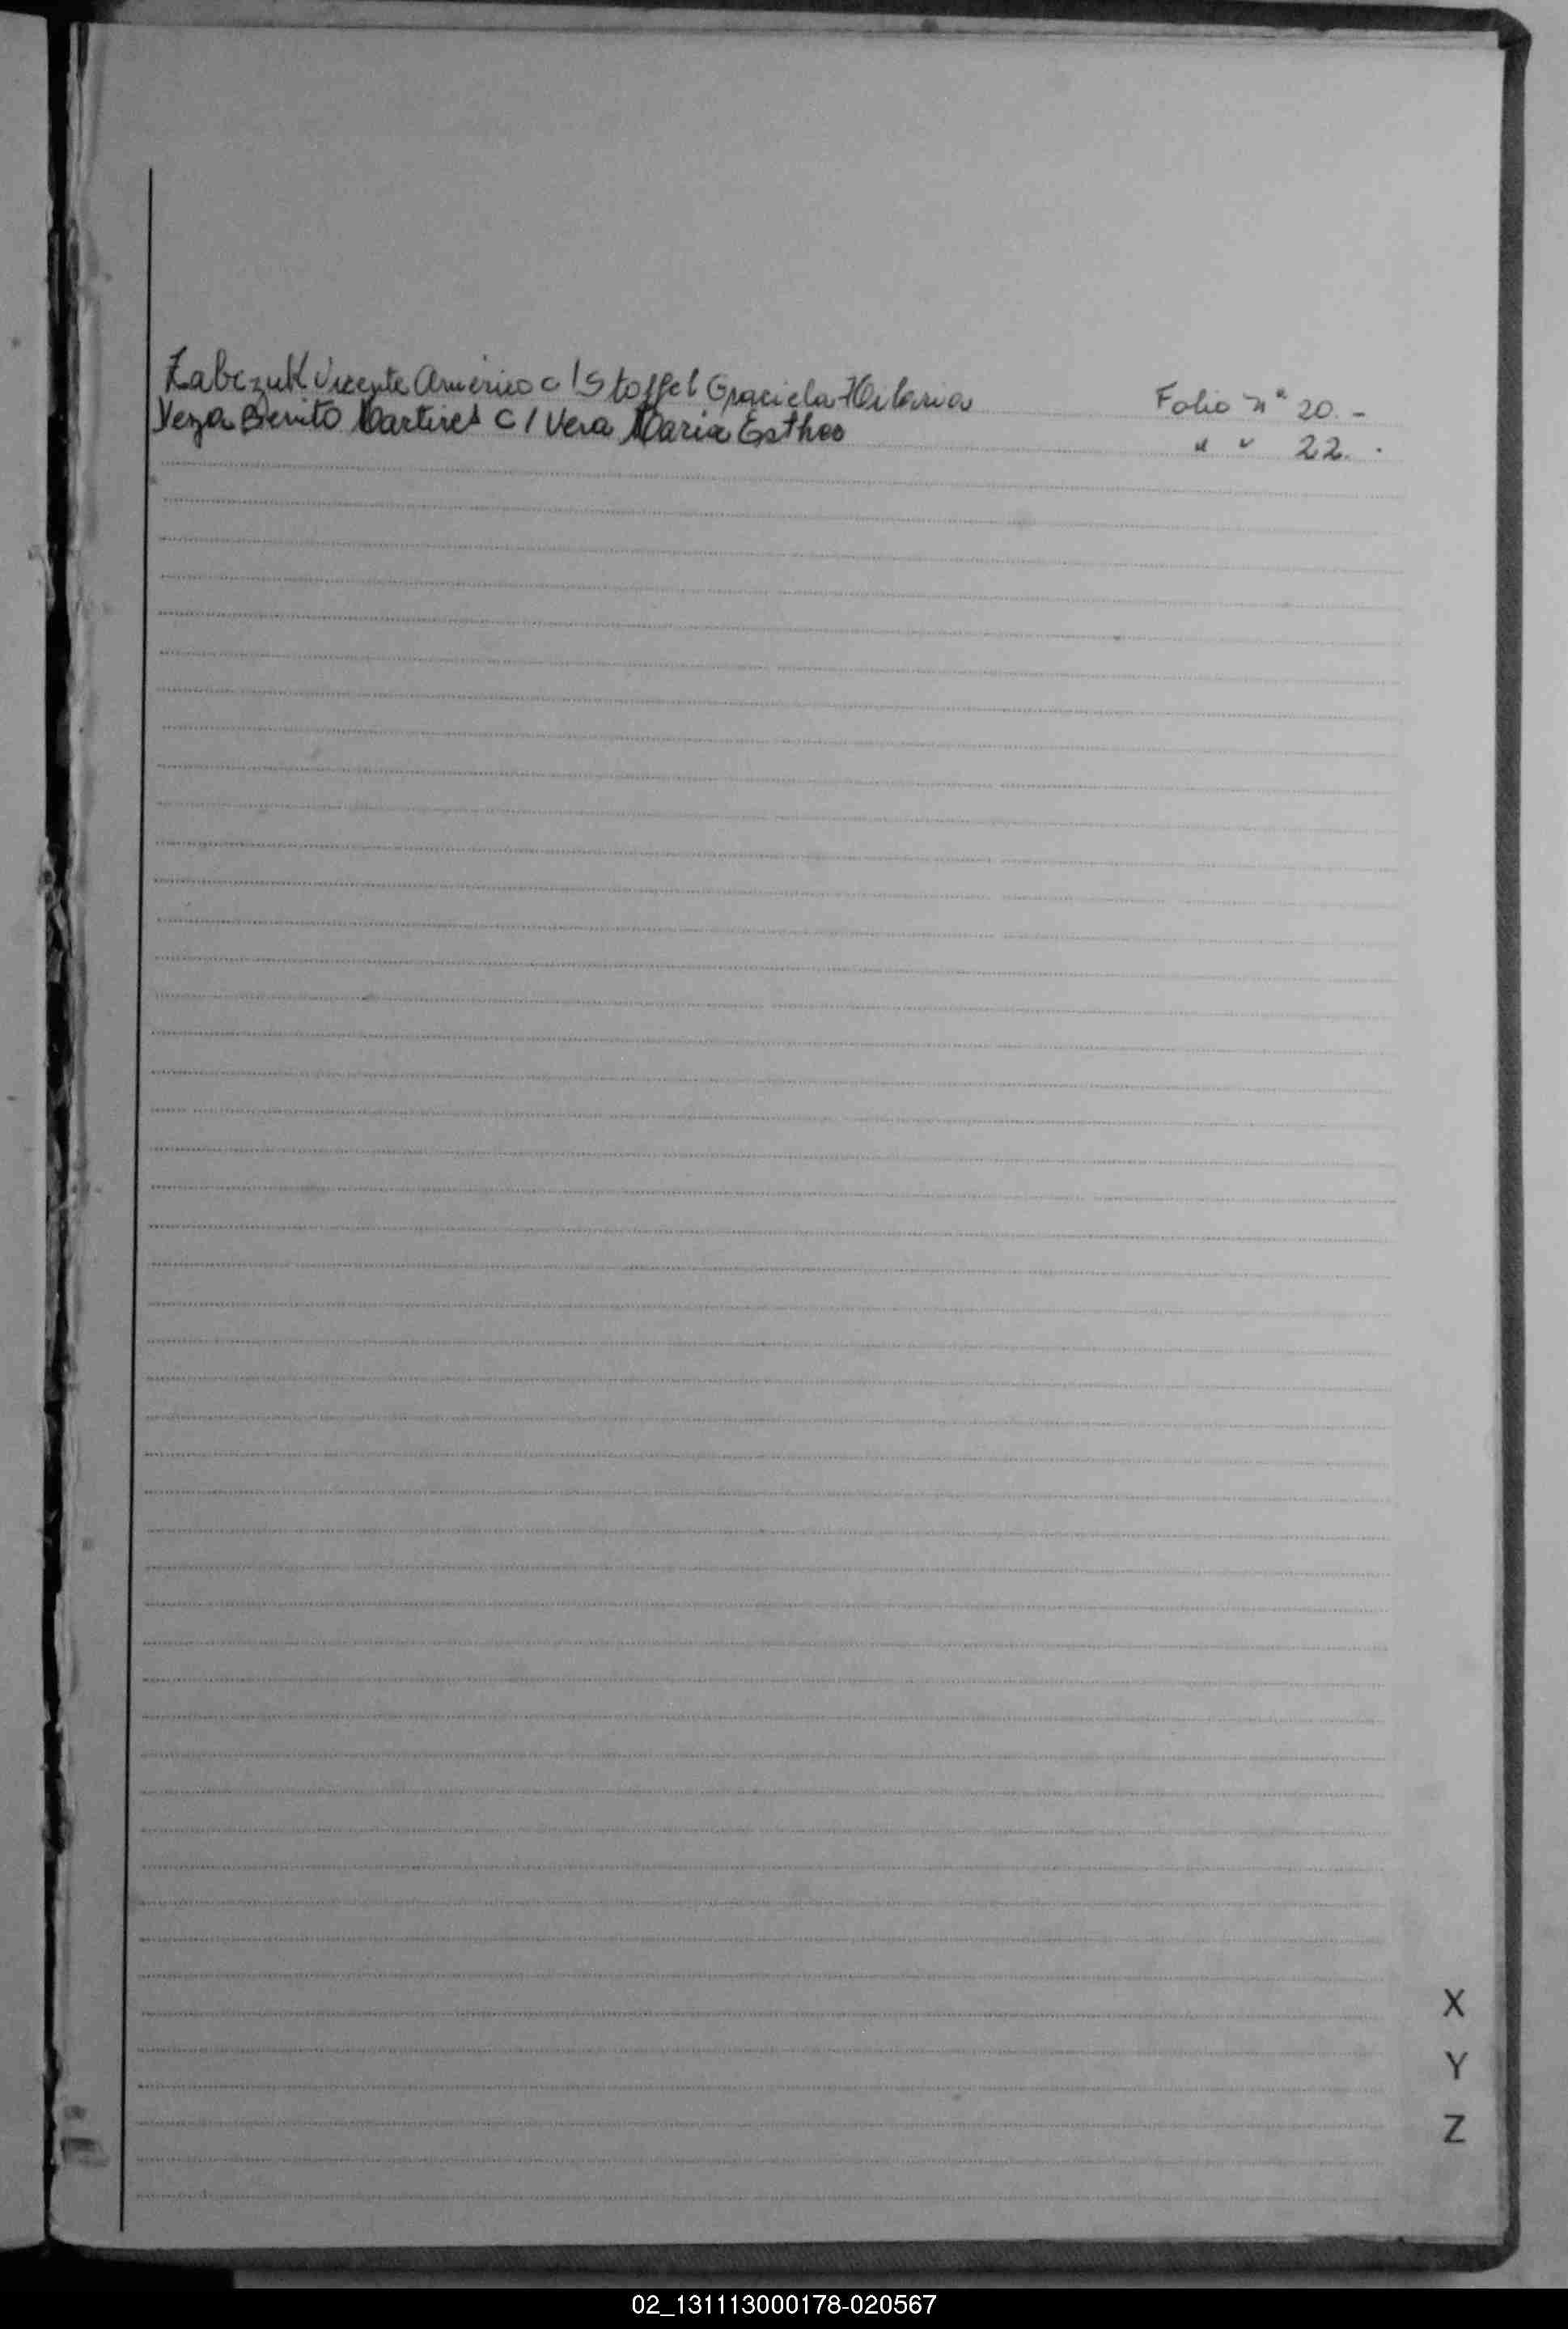 Zabczuk Vicente Americo c/ Stoffel Graciela Hilaria Folio nº 20.-
Benito Martires c/ Vera Maria Esther " " 22.
X
Y
Z
02_131113000178-020567